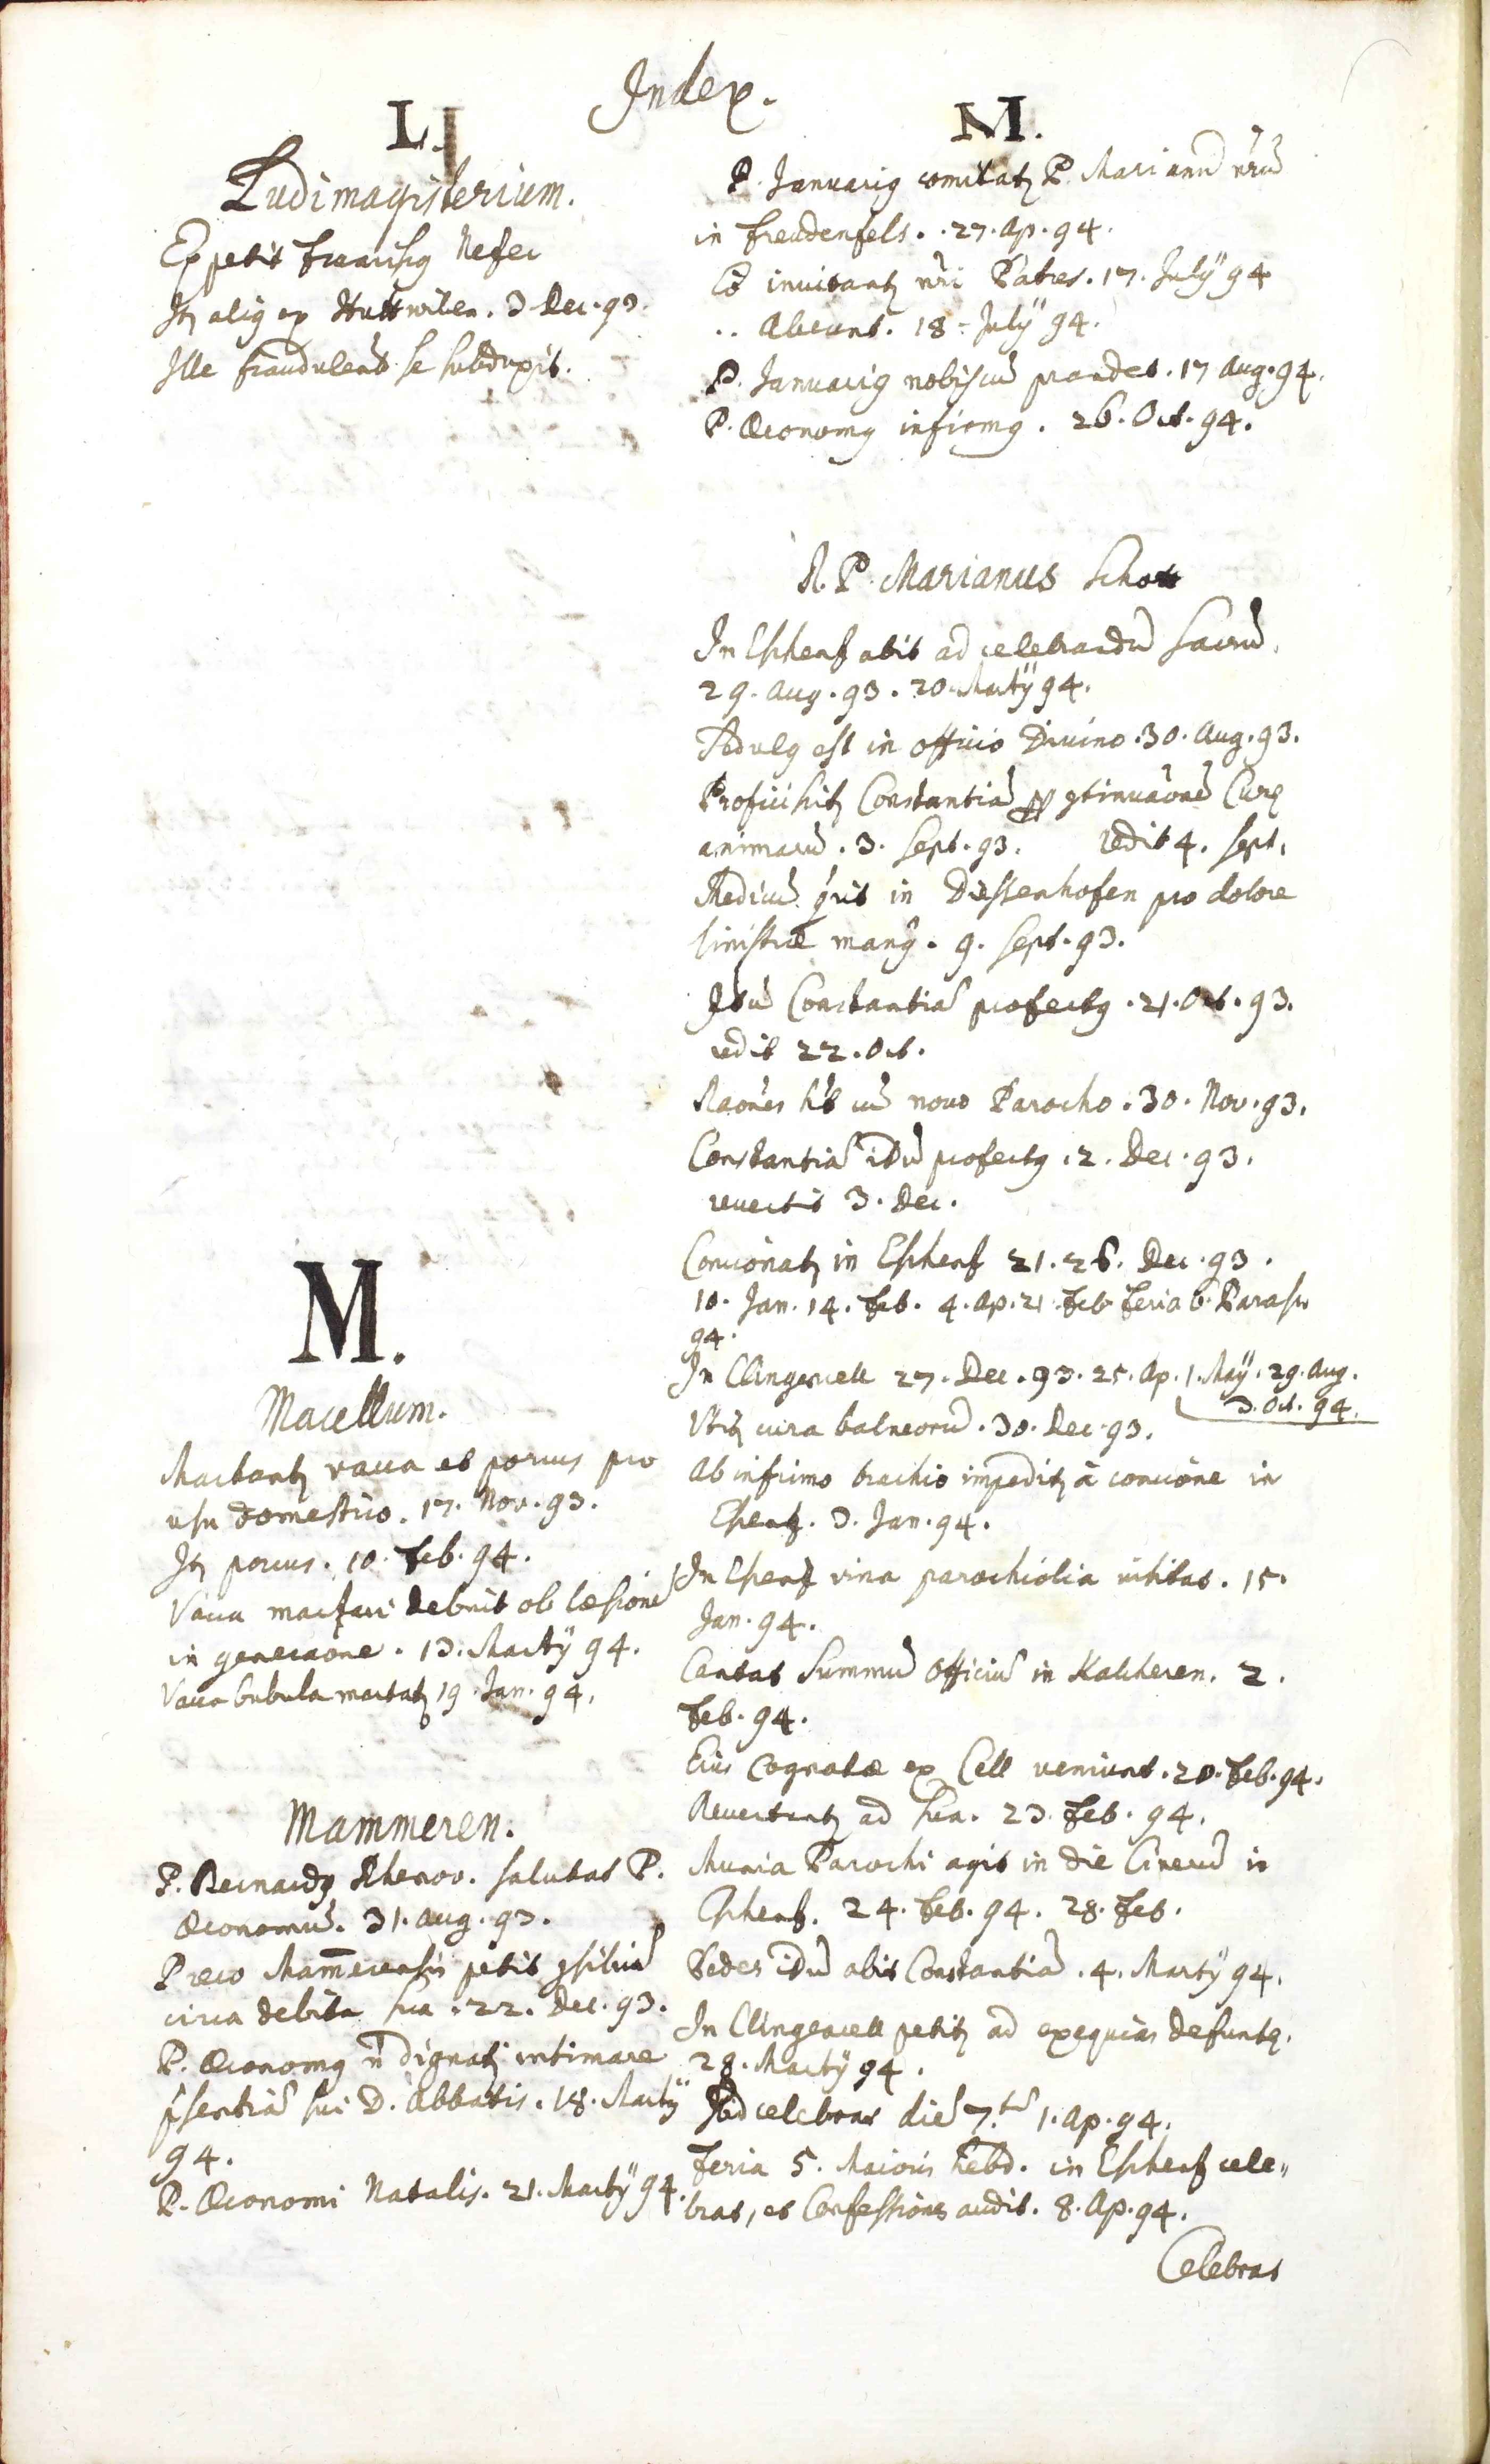 Index.
L.
Ludimagisterium.
Expetit franciscg Nefer
Itz alig ex Huttwilen. 3. Dec. 93.
Ille fraudulent se subduxit.
M.
Macellum.
Mactantz vacca et porcus pro
usu domestico. 17. Nov. 93.
Itz porcus. 10. Feb. 94.
Vacca mactari debuit ob læsione
in generaone. 13. Martÿ 94.
Vacca bubula mactatz 19. Jan. 94.
Mammeren.
P. Bernardg Rhenov. salutat P.
Œconomu. 31. Aug. 93.
Præco Mamerensis petit gsiliu
circa debita sua. 22. Dec. 93.
P. Œconomg n dignatz intimare
psentia sui D. Abbatis. 18. Martÿ
94.
P. Œconomi Natalis. 21. Martÿ 94.
M.
P. Januarig comitatz P. Marianu nru
in freudenfels. . 27. Ap. 94.
Eo invitantz nri Patres. 17. Julÿ 94
.. Abeunt. 18 = Julÿ 94.
P. Januarig nobiscu prandet. 17 Aug. 94.
P. Œconomg infirmg. 26. Oct. 94.
R. P. Marianus Schott
In Eschenz abit ad celebrandu Sacru.
29. Aug. 93. 20. Martÿ 94.
Sedulg est in officio Divino. 30. Aug. 93.
Proficiscitz Constantia pro gtinuaone Curę
animaru. 3. Sept. 93. redit 4. Sept.
Medicu qrit in Diessenhofen pro dolore
sinistræ mang. 9. Sept. 93.
Itu Constantia profectg. 21. Oct. 93.
redit 22. Oct.
Raones hb cu novo Parocho. 30. Nov. 93.
Constantia itu profectg. 2. Dec. 93.
revertit 3. Dec.
Concionatz in Eschenz 21. 26. Dec. 93.
10. Jan. 14. Feb. 4. Ap. 21. Feb. Feria 6. Parasc.
94.
In Clingencell 27. Dec. 93. 25. Ap. 1. Maÿ. 29. Aug.
3. Oct. 94.
Utitz cura balneoru. 30. Dec. 93.
Ab infirmo brachio impeditz à concione in
Eschenz. 3. Jan. 94.
In Eschenz vina parochialia visitat. 15.
Jan. 94.
Cantat Summu Officiu in Kalcheren. 2.
Feb. 94.
Eius Cognatæ ex Cell veniunt. 20. Feb. 94.
Revertuntz ad sua. 23. Feb. 94.
Munia Parochi agit in die Cineru in
Eschenz. 24. Feb. 94. 28. Feb.
Pedes itu abit Constantia. 4. Martÿ 94.
In Clingencell petitz ad exequias defunctę.
28. Martÿ 94.
Ibid celebrat die 7.tu 1. Ap. 94.
Feria 5. Maioris hebd. in Eschenz cele„
brat, et Confessiones audit. 8. Ap. 94.
Celebrat